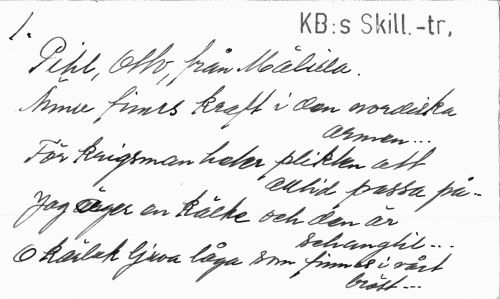 1.
KB:s Skill.-tr.
Pihl, Otto, från Målilla.
Ännu finnes kraft i den nordiska
armen...
För krigsman heter plikten att
alltid passa på-
Jag äger en kälke och den är
schangtil...
O kärlek ljuva låga som finnes i vårt
bröst...